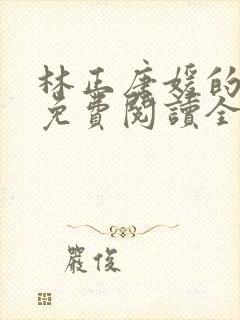 林正唐媛的
免費閱讀全
嚴俊